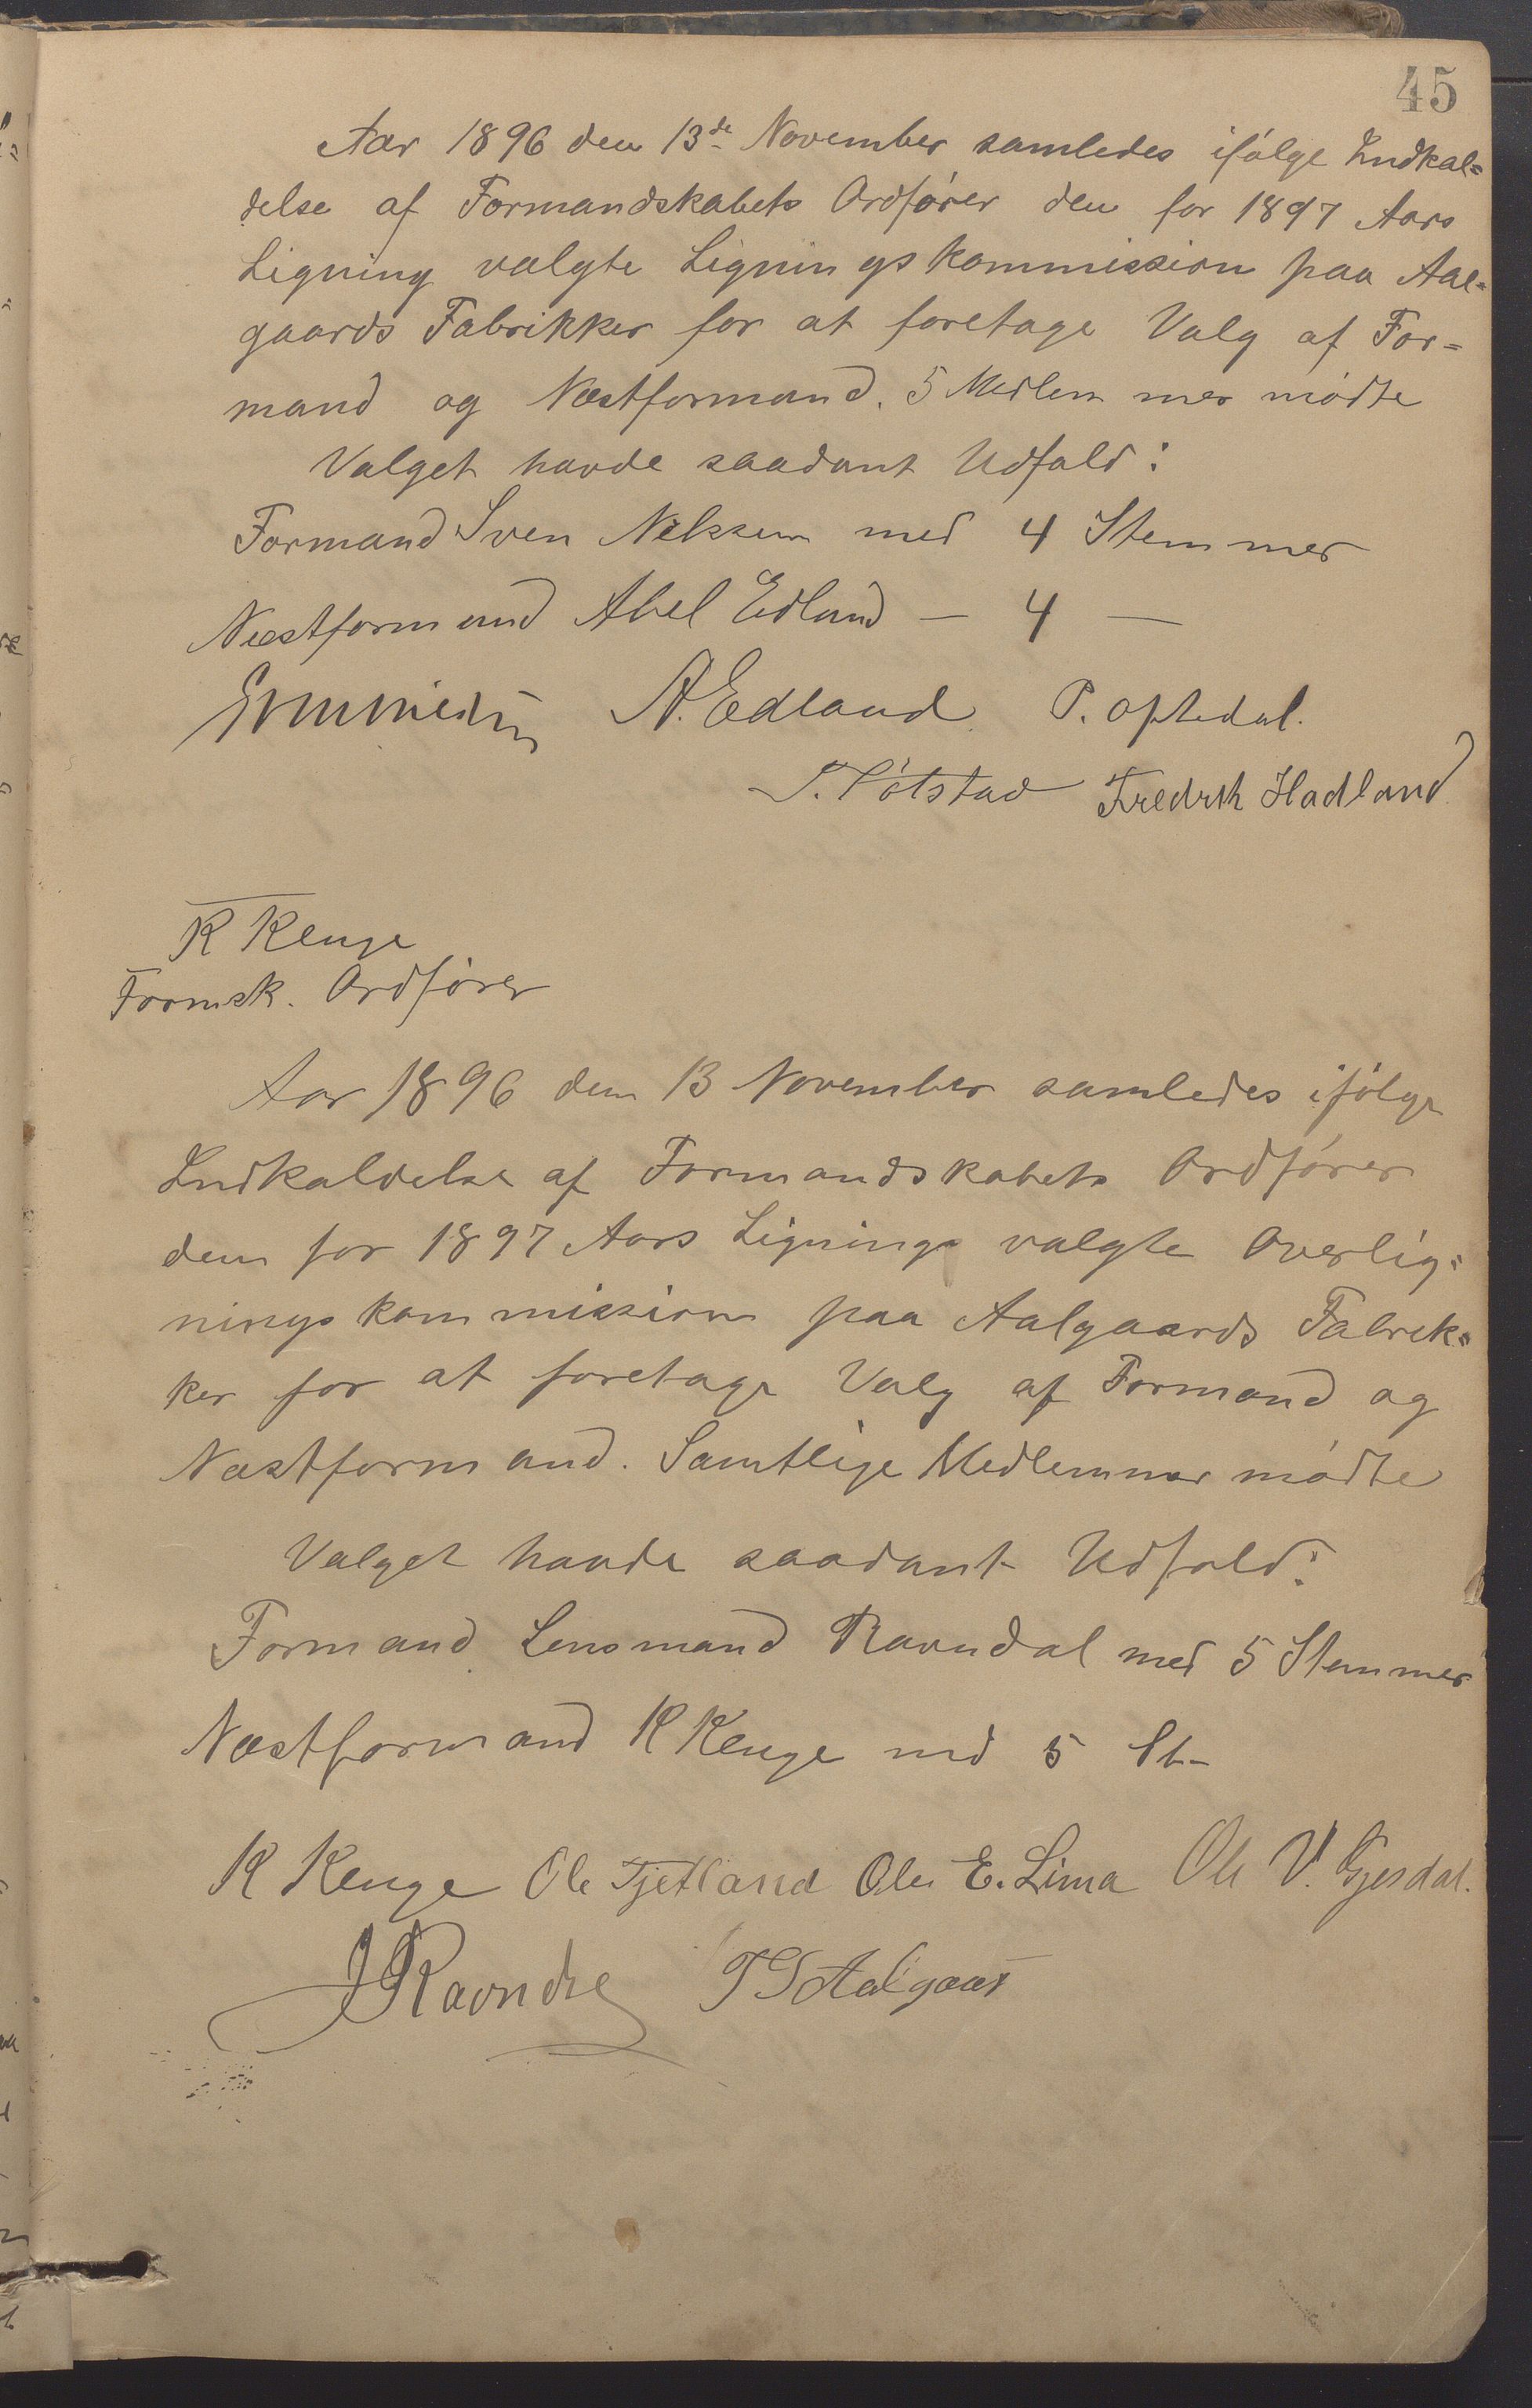 45
Aar 1896 den 13de November samledes ifølge Indkal=
delse af Formandskabets Ordfører den for 1897 Aars
Ligning valgte Ligningskommission paa Aal=
gaards Fabrikker for at foretage Valg af For=
mand og Næstformand. 5 Medlemmer mødte
Valget havde saadant Udfald:
Formand Sven Nilssen med 4 Stemmer
Næstformand Abel Edland — 4 —
A. Edland P. Optedal.
Fredrik Hadland
K Kenge
Formsk. Ordfører
Aar 1896 den 13 November samledes ifølge
Indkaldelse af Formandskabets Ordfører
den for 1897 Aars Lignings valgte Overlig=
ningskommission paa Aalgaards Fabrik=
ker for at foretage Valg af Formand og
Næstformand. Samtlige Medlemmer mødte
Valget havde saadant Udfald:
Formand Lensmand Ravndal med 5 Stemmer
Næstformand K Kenge med 5 St-
K Kenge Ole Tjetland Ole E. Lima Ole V. Gjesdal.
J Ravndal T S Aalgaar